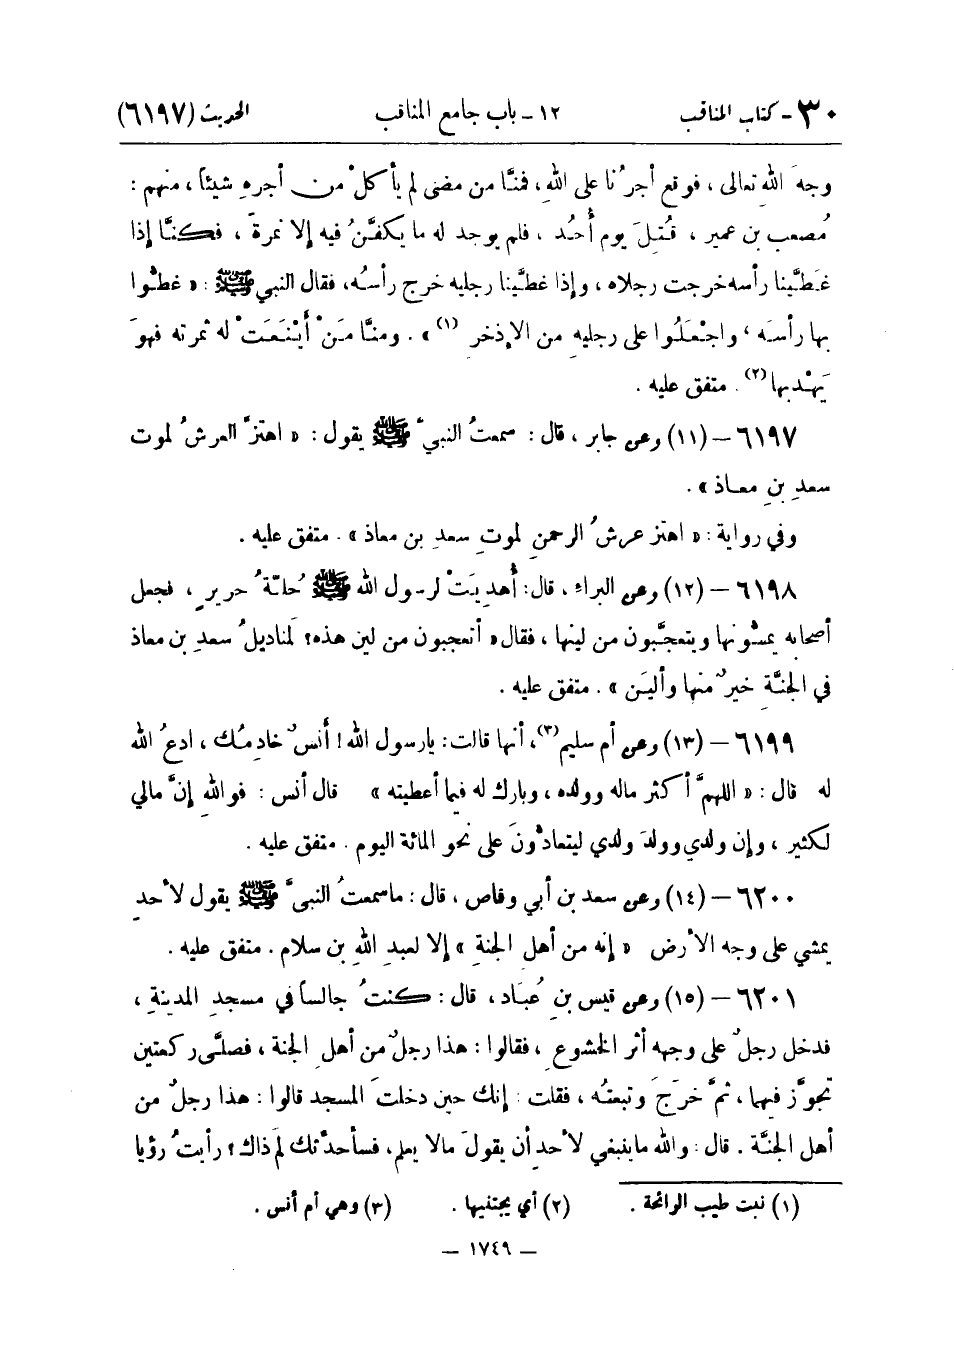 ٣٠ - كتاب المناقب ١٢ - باب جامع المناقب الحديث (٦١٩٧)
وجهَ اللهِ تعالى ، فوقع أجرُنا على اللهِ، فمنَّا من مضى لم يأكلْ من أجرهِ شيئاً ، منهم :
مُصعب بن عمير ، قُتِلَ يوم أُحُد ، فلم يوجد له ما يكفَّنُ فيه إلا نمرةٌ ، فكنَّا إذا
غَطَّينا رأسه خرجت رجلاه ، وإذا غطَّينا رجليه خرج رأسُه، فقال النبي ﷺ : « غطُّوا
بها رأسَه ، واجْعَلُوا على رجليهِ من الإذخرِ (١) » . ومنَّا مَنْ أَيْنَعَتْ له ثمرته فهوَ
يَهْدِبها (٢) . متفق عليه .
٦١٩٧ – (١١) وعن جابر ، قال : سمعتُ النبيَّ ﷺ يقول : « اهتزَّ العرشُ لموت
سعدِ بنِ معاذ » .
وفي رواية : « اهتز عرشُ الرحمنِ لموتِ سعدِ بن معاذ » . متفق عليه .
٦١٩٨ – (١٢) وعن البراءِ ، قال: أُهدِيَتْ لرسول الله ﷺ حُلَّةُ حريرٍ ، فجعل
أصحابه يمسُّونها ويتعجَّبون من لينها ، فقال « أتعجبون من لين هذه؟ لَمناديلُ سعدِ بن معاذ
في الجنَّةِ خيرٌ منها وألين » . متفق عليه .
٦١٩٩ – (١٣) وعن أم سليم (٣)، أنها قالت : يا رسول الله ! أنسٌ خادمُك ، ادعُ الله
له قال : « اللهمَّ أكثر ماله وولده ، وبارك له فيما أعطيته » قال أنس : فواللهِ إنَّ مالي
لكثير ، وإن ولدي وولدَ ولدي ليتعادُّونَ على نحو المائة اليوم . متفق عليه .
٦٢٠٠ – (١٤) وعن سعد بن أبي وقاص ، قال : ما سمعتُ النبيَّ ﷺ يقول لأحدٍ
يمشي على وجه الأرض « إنه من أهل الجنةِ » إلا لعبدِ اللهِ بن سلام . متفق عليه .
٦٢٠١ – (١٥) وعن قيس بنِ عُبَاد ، قال : كنتُ جالساً في مسجدِ المدينةِ ،
فدخل رجلٌ على وجهه أثر الخشوعِ ، فقالوا : هذا رجلٌ من أهلِ الجنة ، فصلَّى ركعتين
تجوَّز فيهما ، ثمَّ خرَجَ وتبعتُه ، فقلت : إنك حين دخلتَ المسجد قالوا : هذا رجلٌ من
أهل الجنَّة . قال : والله ما ينبغي لأحد أن يقولَ مالا يعلم، فسأحدِّثك لمَ ذاك ؟ رأيتُ رؤيا
(١) نبت طيب الرائحة . (٢) أي يجتنيها . (٣) وهي أم أنس .
— ١٧٤٩ —